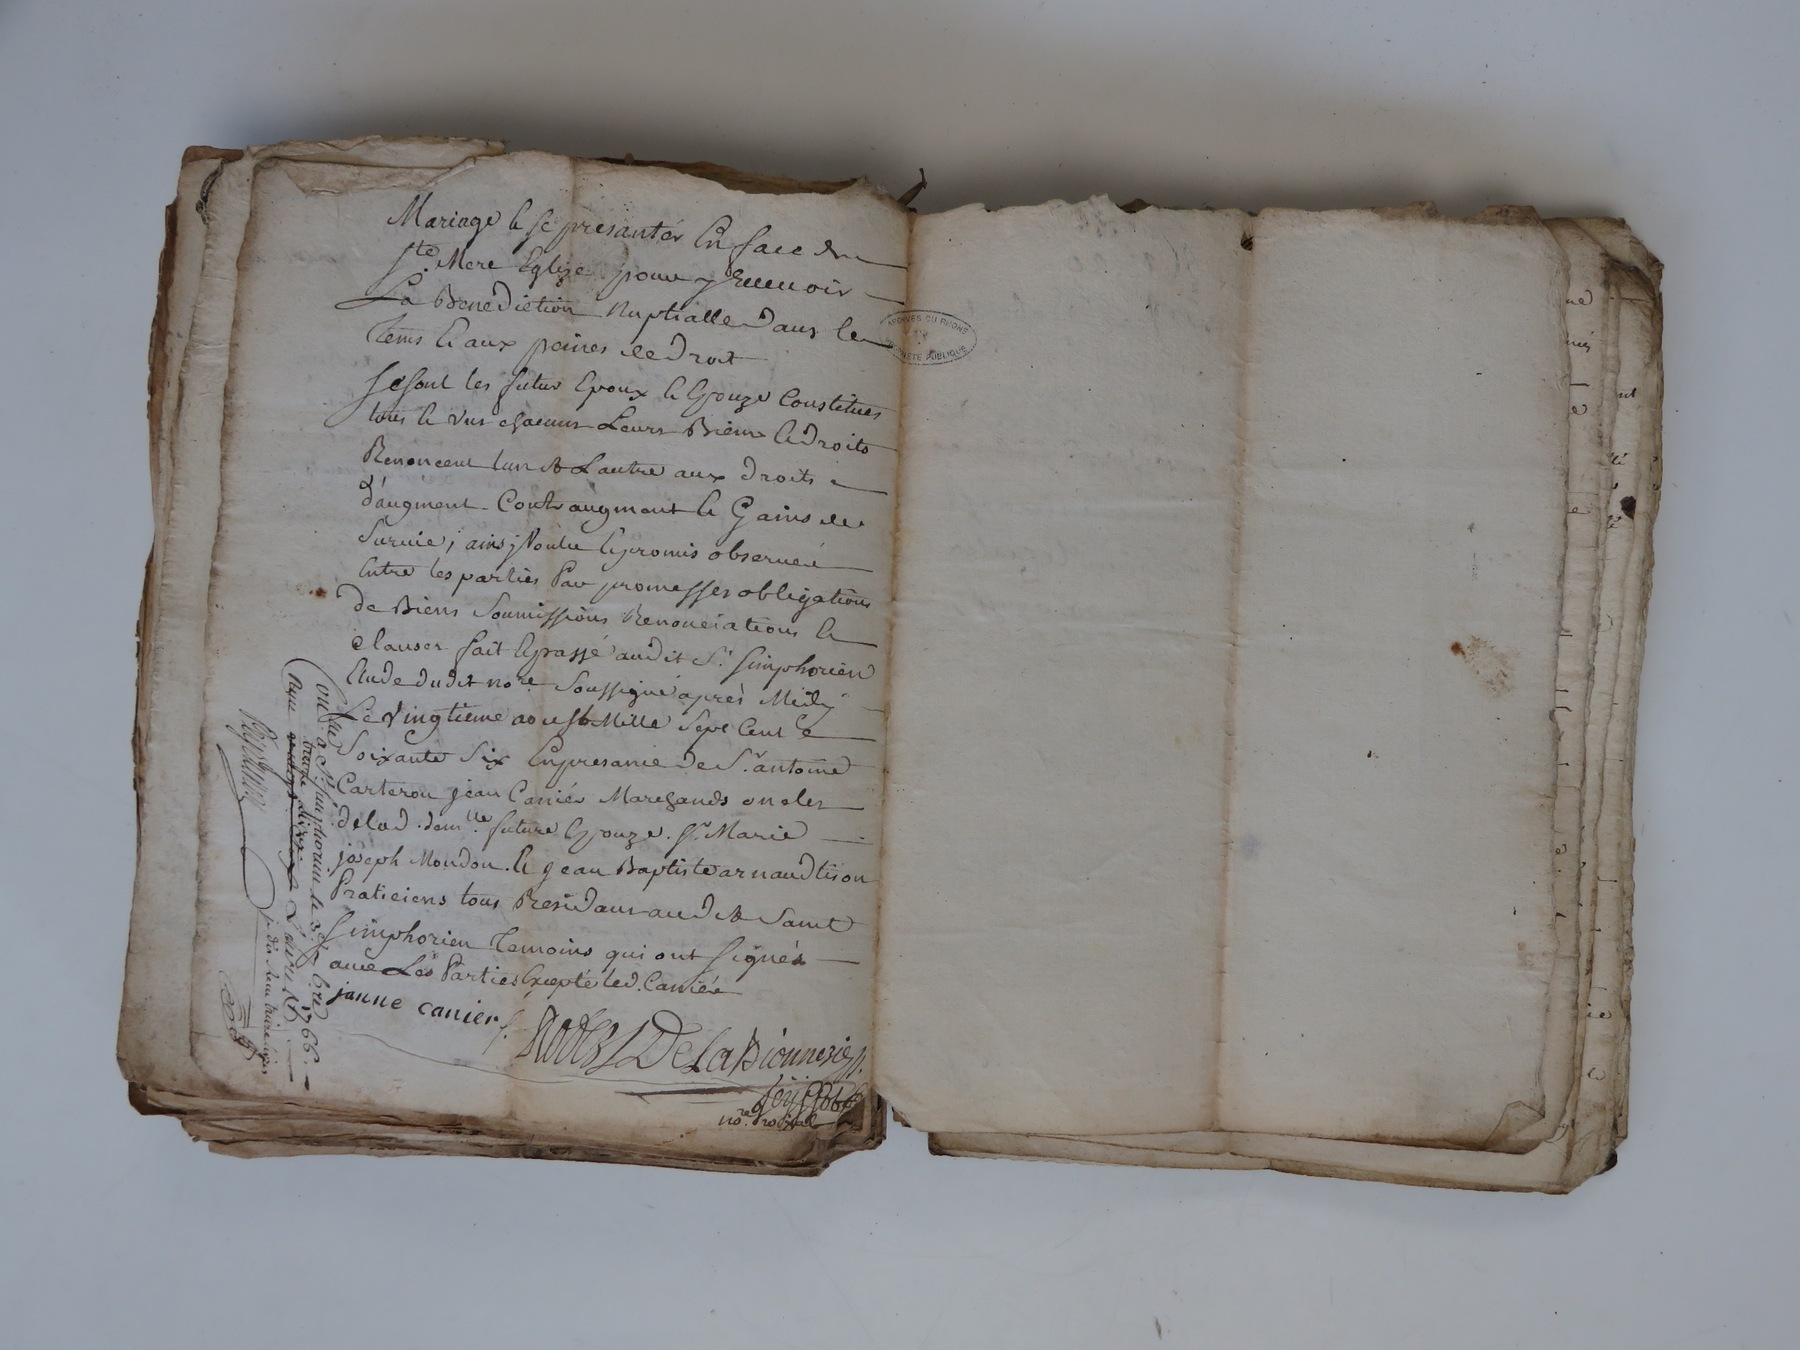 Mariage & se presanter En face de
ste. Mere Eglize pour y Recevoir
La Benediction Nuptialle Dans le
Tems & aux peines de Droit
se sont les futur Epoux & Epouze Constitues
tous & Vns chacuns Leurs Biens & Droits
Renoncent lun A Lautre aux Droits
d'augment Contraugmant & Gains de
survie,
Entre les parties Par promesses obligations
de Biens Soumissions Renonciations &
clauses fait & passé audit St. Simphorien
Etude dudit nore. Soussigné après Midy
Le Vingtieme aoust Mille Sept Cent
Soixante Six En presance De Sr. antoine
Carteron jean Canier Marchands oncles
de lad. demlle. future Epouze. Sr. Marie
joseph Mondon. & jean Baptiste arnaud tison
Praticiens tous Residans audit Saint
Simphorien Temoins qui ont signés
avec Les Parties Excepté led. Canier
janne canier
De La Bionnerie
nore. Royal
ARCHIVES DU RHONE
PROPRIÉTÉ PUBLIQUE
Conlle. a St. Simphorien le 3e. 7bre 1766
Reçu treize livres